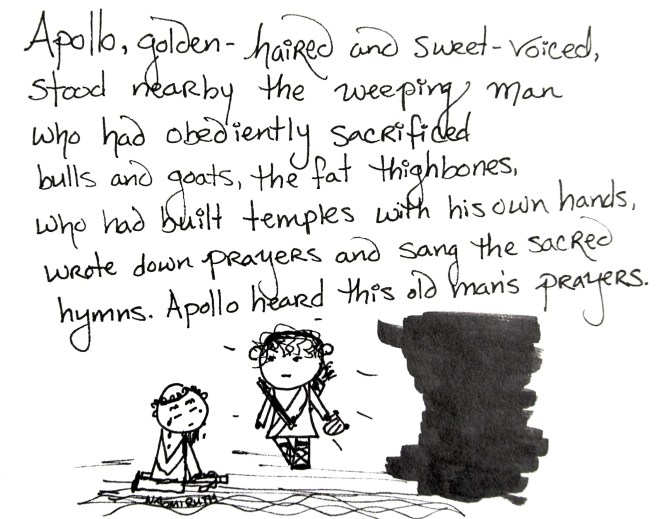 Apollo, golden-haired and sweet-voiced,
stood nearby the weeping man
who had obediently sacrificed
bulls and goats, the fat thighbones,
who had built temples with his own hands,
wrote down prayers and sang the sacred
hymns. Apollo heard this old man's prayers.
NAOMIRUTH